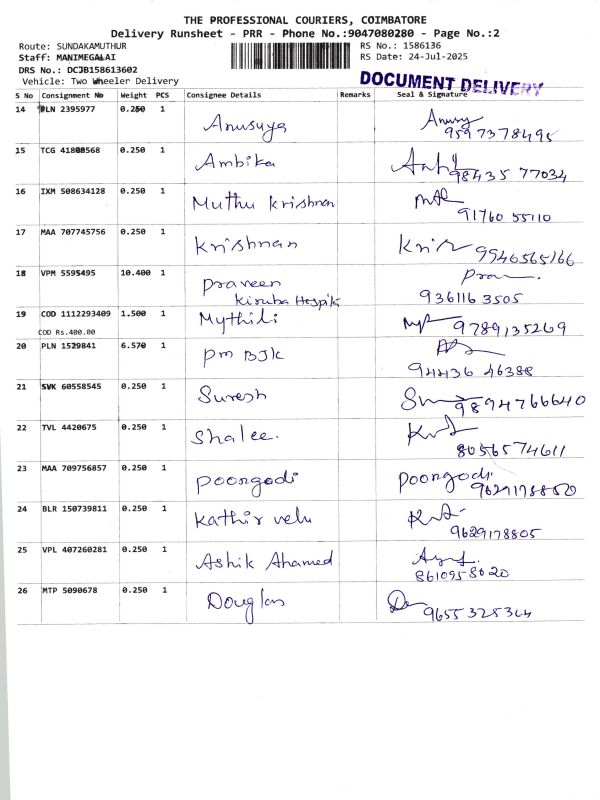 THE PROFESSIONAL COURIERS, COIMBATORE
Delivery Runsheet - PRR - Phone No.:9047080280 - Page No.:2
Route: SUNDAKAMUTHUR
RS No.: 1586136
Staff: MANIMEGALAI
RS Date: 24-Jul-2025
DRS No.: DCJB158613602
Vehicle: Two Wheeler Delivery
DOCUMENT DELIVERY
S No Consignment No Weight PCS Consignee Details Remarks Seal & Signature
14 PLN 2395977 0.250 1 Anusuya Anusy
9597378495
15 TCG 41800568 0.250 1 Ambika
98435 77034
16 IXM 508634128 0.250 1 Muthu krishnan
91760 55110
17 MAA 707745756 0.250 1 Krishnan
9946565166
18 VPM 5595495 10.400 1 Praveen
Kiruba Hospik
9361163505
19 COD 1112293409 1.500 1 Mythili 9789135269
COD Rs.400.00
20 PLN 1529841 6.570 1 pm BJk
94436 46388
21 SVK 60558545 0.250 1 Suresh
9894766640
22 TVL 4420675 0.250 1 Shalee.
8056574611
23 MAA 709756857 0.250 1 Poongodi Poongodi
9629178850
24 BLR 150739811 0.250 1 Kathir velu
9629178805
25 VPL 407260281 0.250 1 Ashik Ahamed
8610958020
26 MTP 5090678 0.250 1 Douglas
9655325364